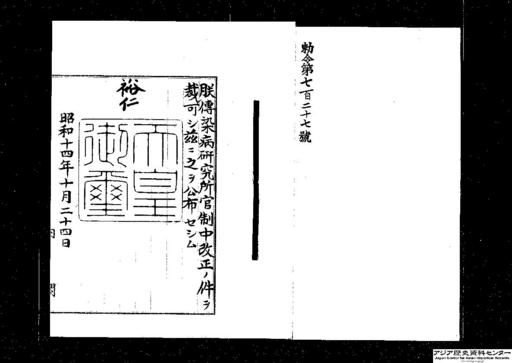 勅令第七百二十七號
朕傳染病硏究所官制中改正ノ件ヲ
裁可シ茲ニ之ヲ公布セシム
裕仁
天皇
御璽
昭和十四年十月二十四日
内閣
アジア歴史資料センター
Japan Center for Asian Historical Records